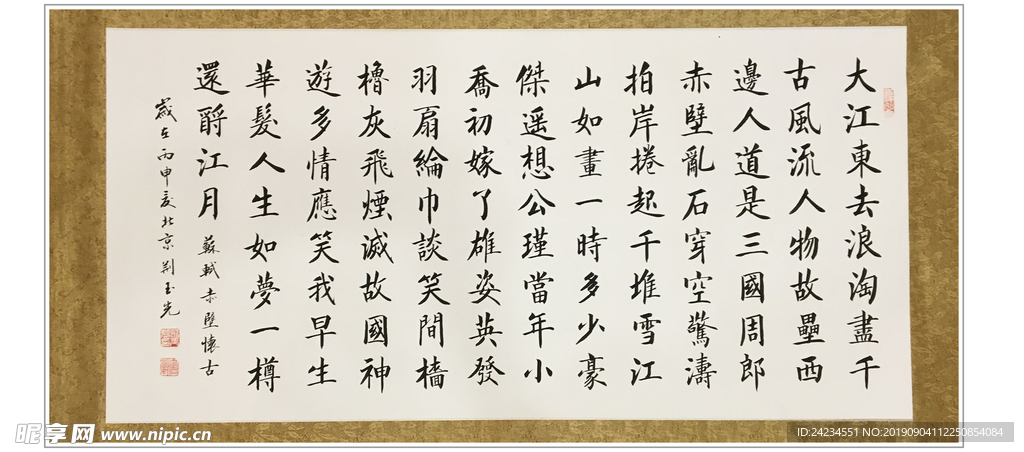 大江東去浪淘盡千
古風流人物故壘西
邊人道是三國周郎
赤壁亂石穿空驚濤
拍岸捲起千堆雪江
山如畫一時多少豪
傑遥想公瑾當年小
喬初嫁了雄姿英發
羽扇綸巾談笑間檣
櫓灰飛煙滅故國神
遊多情應笑我早生
華髮人生如夢一樽
還酹江月 蘇軾赤壁懷古
歲在丙申夏北京荆玉光
昵享网 www.nipic.cn
ID:24234551 NO:20190904112250854084